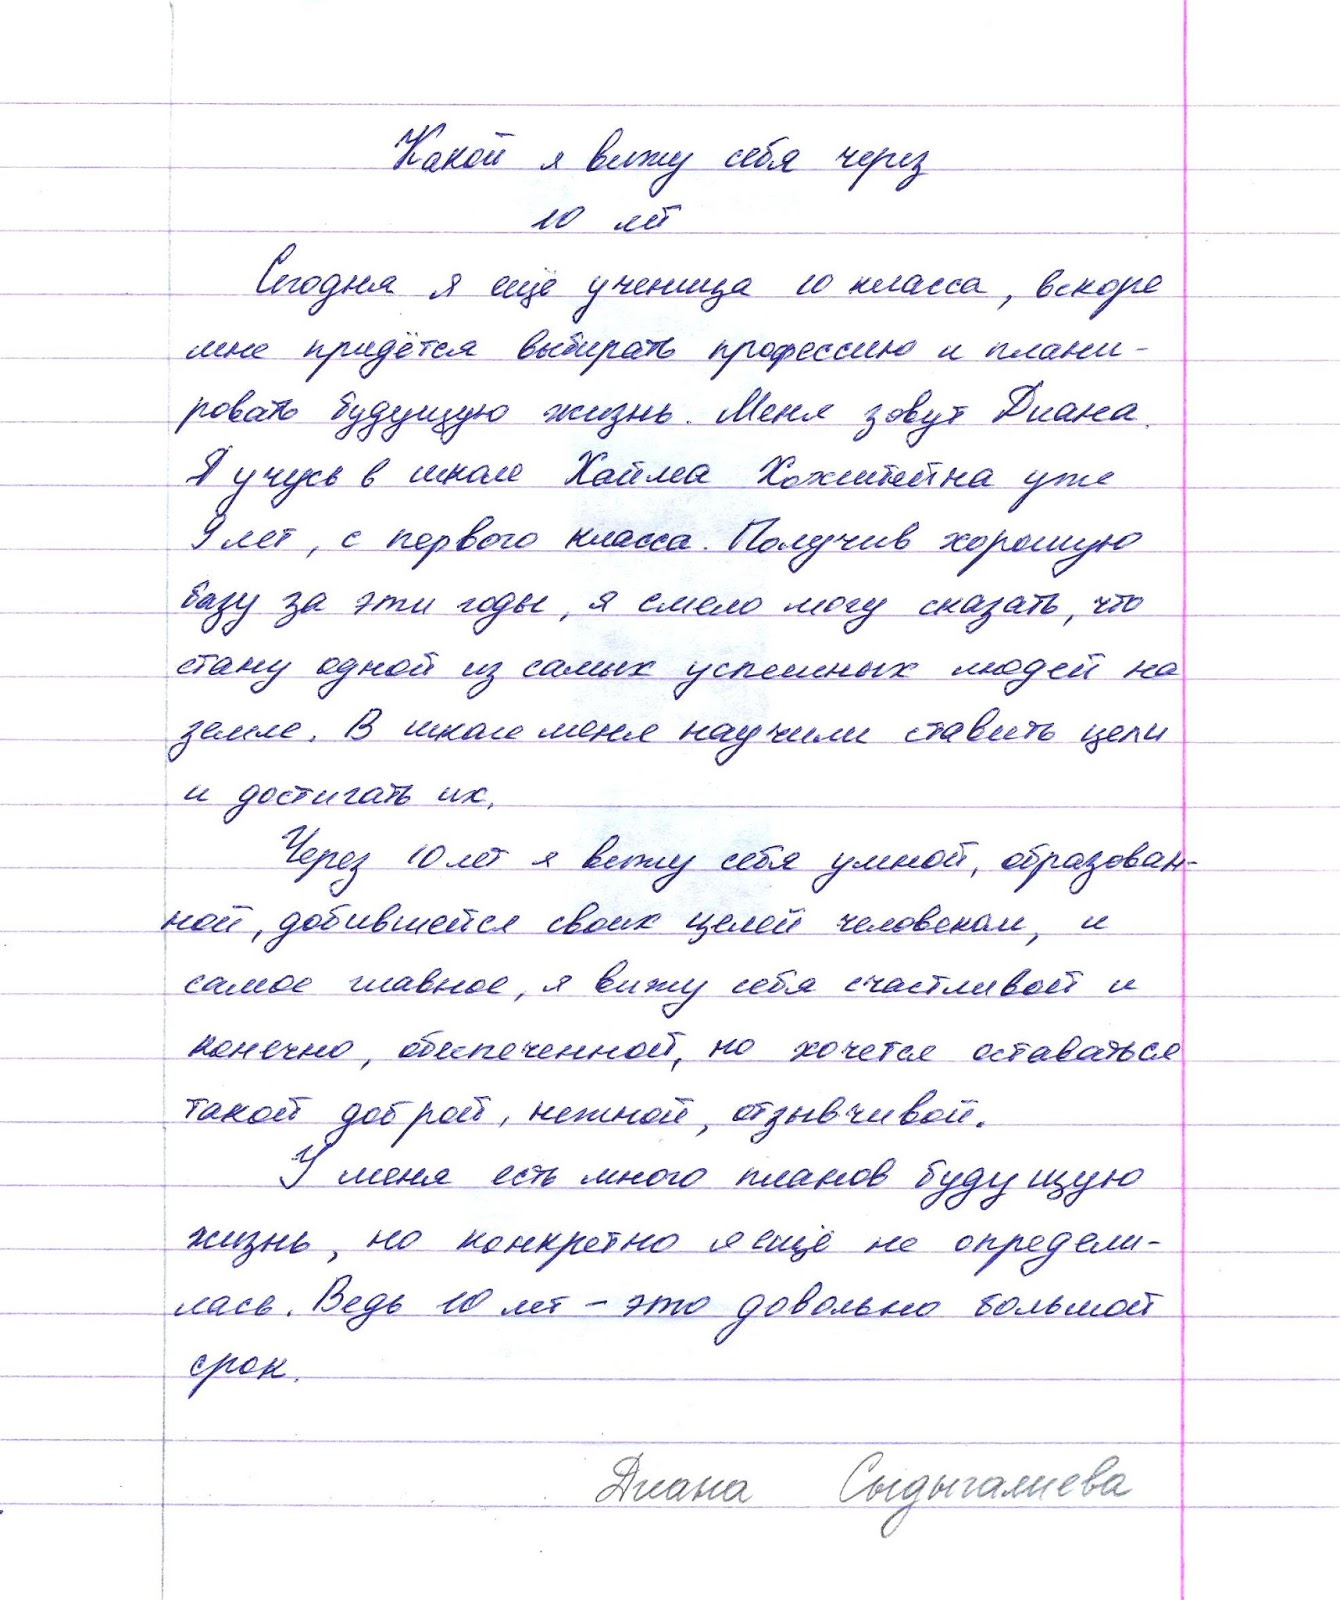 Какой я вижу себя через
10 лет
Сегодня я ещё ученица 10 класса, вскоре
мне придётся выбирать профессию и плани-
ровать будущую жизнь. Меня зовут Диана.
Я учусь в школе Хайлеа уже
9 лет, с первого класса. Получив хорошую
базу за эти годы, я смело могу сказать, что
стану одной из самых успешных людей на
земле. В школе меня научили ставить цели
и достигать их.
Через 10 лет я вижу себя умной, образован-
ной, добившейся своих целей человеком, и
самое главное, я вижу себя счастливой и
конечно, обеспеченной, но хочется оставаться
такой доброй, нежной, отзывчивой.
У меня есть много планов будущую
жизнь, но конкретно я ещё не определи-
лась. Ведь 10 лет – это довольно большой
срок.
Диана Сыдыгалиева